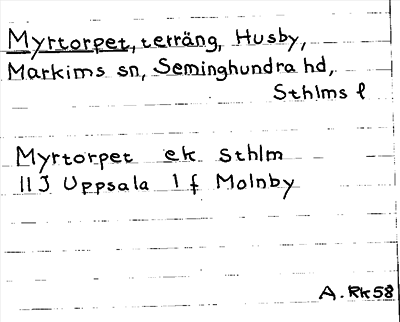 Myrtorpet, terräng, Husby,
Markims sn, Seminghundra hd,
Sthlms l
Myrtorpet ek Sthlm
11J Uppsala 1 f Molnby
A. Rk 58